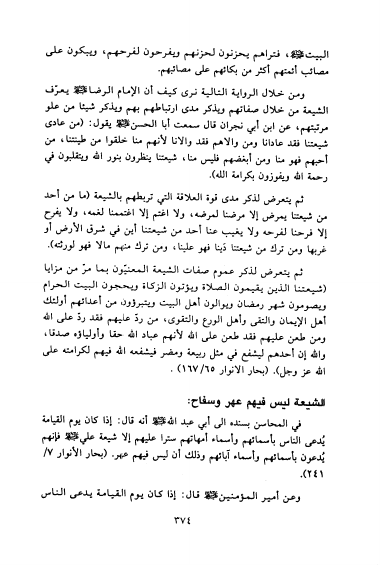 البيت ﷺ، فتراهم يحزنون لحزنهم ويفرحون لفرحهم، ويبكون على
مصائب أئمتهم أكثر من بكائهم على مصائبهم.
ومن خلال الرواية التالية نرى كيف أن الإمام الرضا ﷺ يعرّف
الشيعة من خلال صفاتهم ويذكر مدى ارتباطهم بهم ويذكر شيئا من علو
مرتبتهم، عن ابن أبي نجران قال سمعت أبا الحسن ﷺ يقول: (من عادى
شيعتنا فقد عادانا ومن والاهم فقد والانا لأنهم منا خلقوا من طينتنا، من
أحبهم فهو منا ومن أبغضهم فليس منا، شيعتنا ينظرون بنور الله ويتقلبون في
رحمة الله ويفوزون بكرامة الله).
ثم يتعرض لذكر مدى قوة العلاقة التي تربطهم بالشيعة (ما من أحد
من شيعتنا يمرض إلا مرضنا لمرضه، ولا اغتم إلا اغتممنا لغمه، ولا يفرح
إلا فرحنا لفرحه ولا يغيب عنا أحد من شيعتنا أين في شرق الأرض أو
غربها ومن ترك من شيعتنا دَينا فهو علينا، ومن ترك منهم مالا فهو لورثته).
ثم يتعرض لذكر عموم صفات الشيعة المعنيّون بما مرّ من مزايا
(شيعتنا الذين يقيمون الصلاة ويؤتون الزكاة ويحجون البيت الحرام
ويصومون شهر رمضان ويوالون أهل البيت ويتبرؤون من أعدائهم أولئك
أهل الإيمان والتقى وأهل الورع والتقوى، من ردّ عليهم فقد ردّ على الله
ومن طعن عليهم فقد طعن على الله لأنهم عباد الله حقا وأولياؤه صدقا،
والله إن أحدهم ليشفع في مثل ربيعة ومضر فيشفعه الله فيهم لكرامته على
الله عز وجل). (بحار الانوار ٦٥/ ١٦٧) .
الشيعة ليس فيهم عهر وسفاح:
في المحاسن بسنده الى أبي عبد الله ﷺ أنه قال: إذا كان يوم القيامة
يُدعى الناس بأسمائهم وأسماء أمهاتهم سترا عليهم إلا شيعة علي ﷺ فإنهم
يُدعون بأسمائهم وأسماء آبائهم وذلك أن ليس فيهم عهر. (بحار الأنوار ٧/
٢٤١).
وعن أمير المؤمنين ﷺ قال: إذا كان يوم القيامة يدعى الناس
٣٧٤